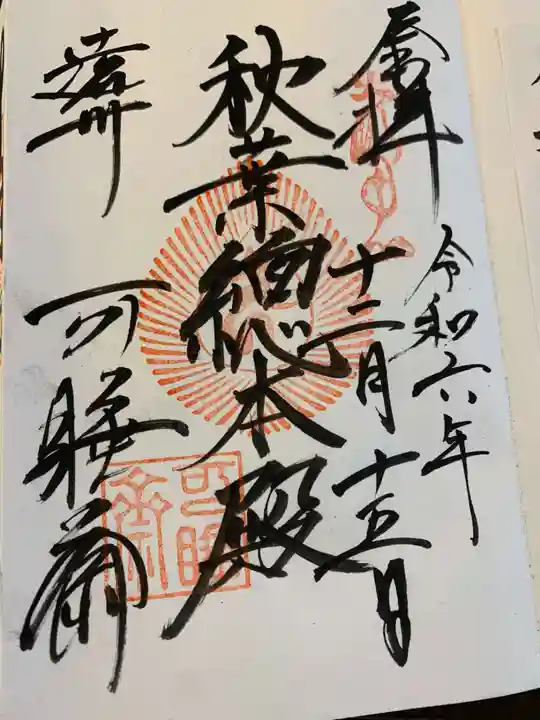 奉拝
令和六年
十二月十五日
秋葉總本殿
遠州
可睡斎